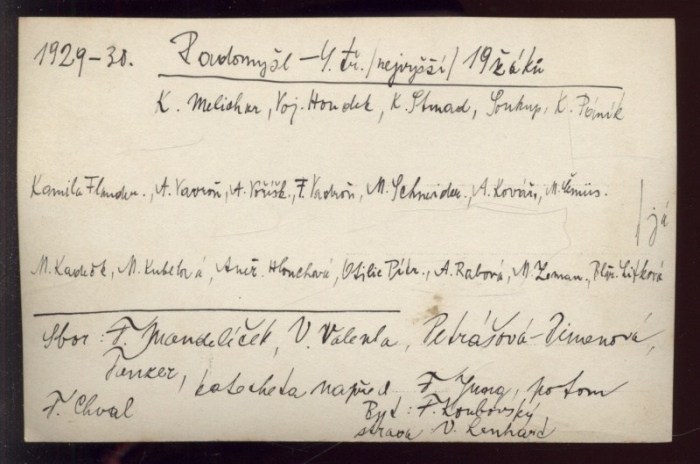 1929-30. Radomyšl - 4. tř. /nejvyšší/ 19 žáků
K. Melichar, Voj. Houdek, K. Strnad, Soukup, K.
Kamila Flander., A. Vavroň, A. Voříšk., F. Vadroň, M. Schneider., A. Kovář, M.
/ já
M. Kadeřk, M. Kubelová, Anež. Hlouchová, Otilie, A. Rabová, M. Zeman., Lifková
Sbor: F. Mandelíček, V. Valenta, Petrášová-Zimenová,
katecheta napřed F. Jung, potom
F. Chval
Byt: F. Koubovský
strava V. Lenhard